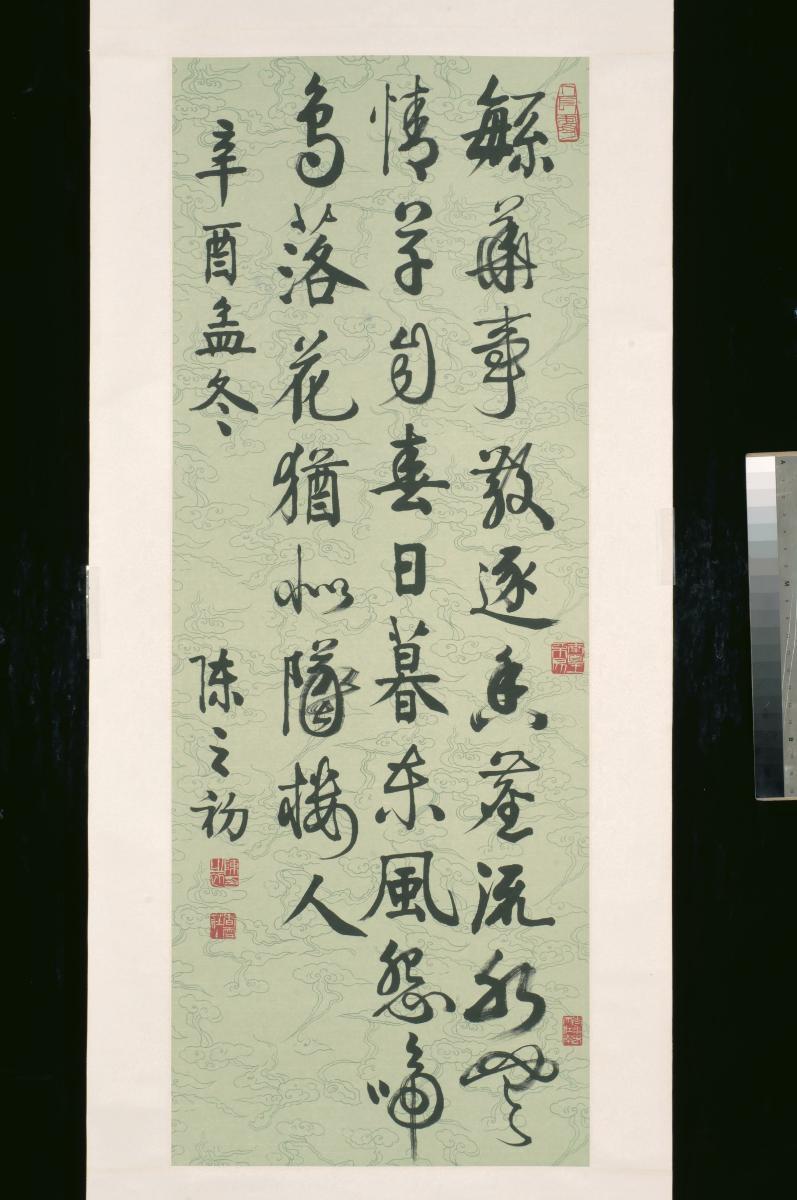 緐華事散逐香塵流水無
情草自春日暮東風怨啼
鳥落花猶似墜樓人
辛酉孟冬 陳之初